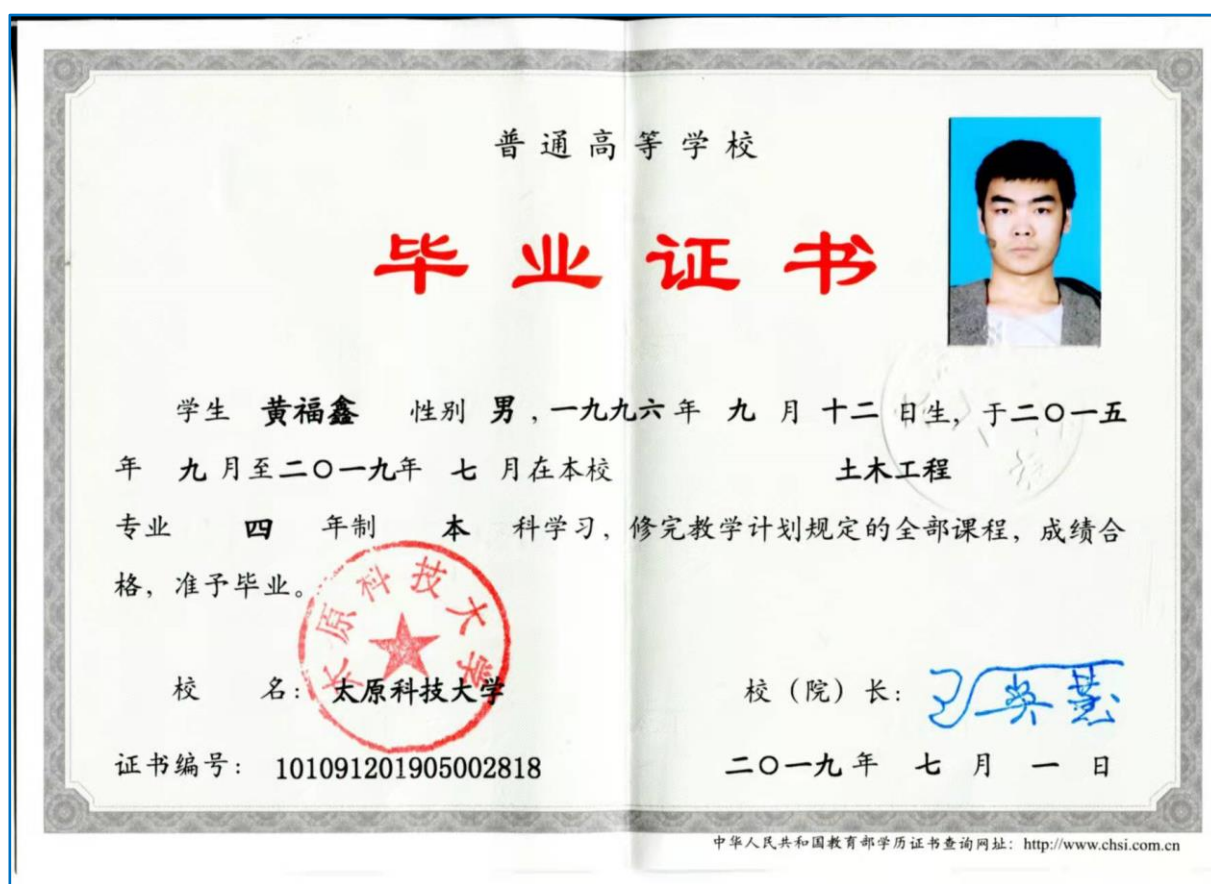 普通高等学校
毕业证书
学生 黄福鑫 性别 男，一九九六年 九 月 十二 日生，于二〇一五
年 九月至二〇一九年 七 月在本校 土木工程
专业 四 年制 本 科学习，修完教学计划规定的全部课程，成绩合
格，准予毕业。
太原科技大学
校 名：太原科技大学 校（院）长：
证书编号：101091201905002818 二〇一九年 七 月 一 日
中华人民共和国教育部学历证书查询网址：http://www.chsi.com.cn